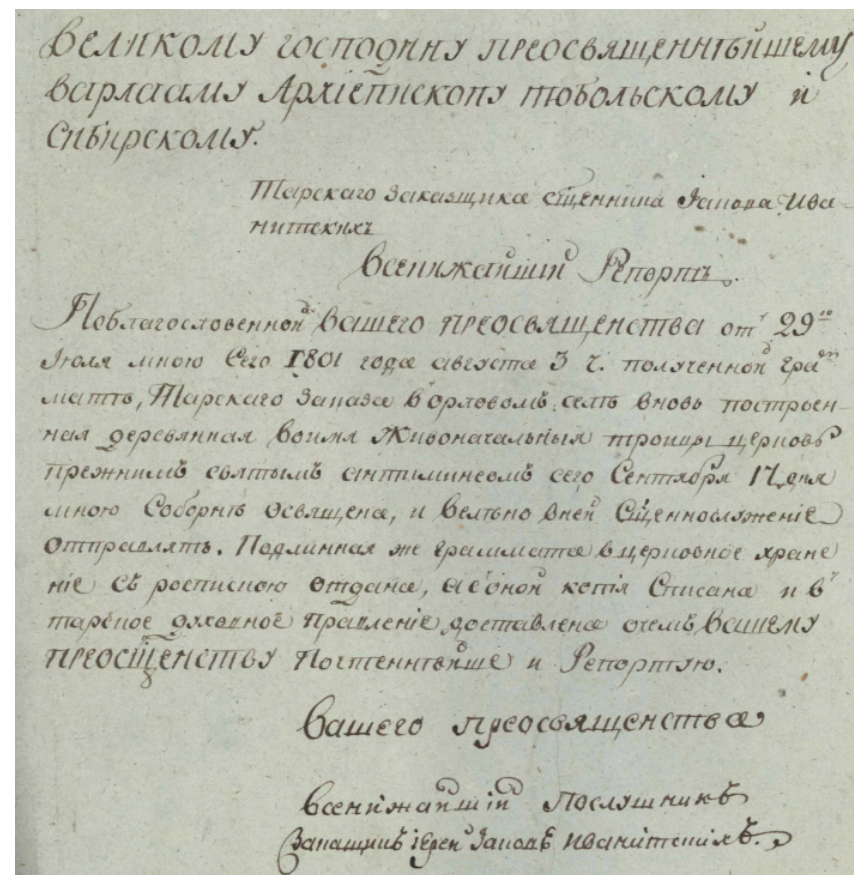 Великому господину преосвященнѣйшему
варлааму Архіепископу тобольскому и
Сибирскому.
Тарскаго Заказщика сщенника Іакова Ива-
нитскихъ
Всенижайшій Репортъ.
Поблагословенной вашего преосвященства отъ 29го
Іюля мною Сего 1801 года августа 3 ч. полученной гра-
матѣ, Тарскаго Заказа ворловомъ селѣ вновь построен-
ная деревянная воимя Живоначальныя троицы церковь
прежнимъ святымъ антиминсомъ сего Сентября 17 дня
мною Соборнѣ Освящена, и велѣно вней Сщеннослужение
Отправлять. Подлинная же граммата вцерковное хране
ніе съ роспискою Отдана, асоной копія Списана и в
тарское духовное Правление доставлена очемъ вашему
преосщенству Почтеннѣйше и Репортую.
Вашего преосвященства
Всенижайшій послушникъ
Закащикъ іерей Іаковъ иванитскихъ.